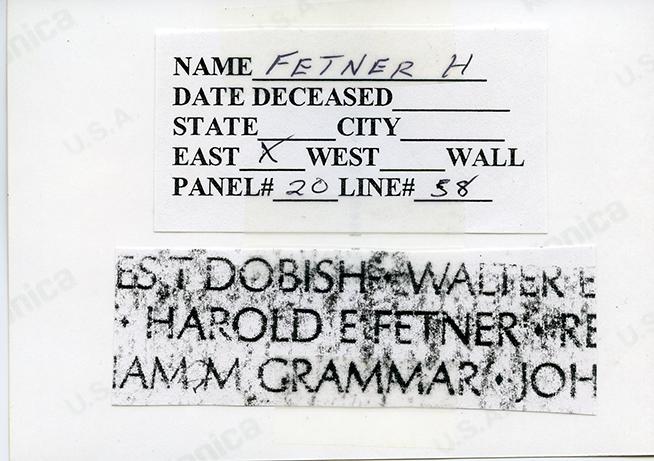 NAME FETNER H
DATE DECEASED
STATE CITY
EAST X WEST WALL
PANEL# 20 LINE# 58
ES T DOBISH WALTER E
· HAROLD E FETNER · RE
IAM M GRAMMAR · JOH
Konica
U.S.A.